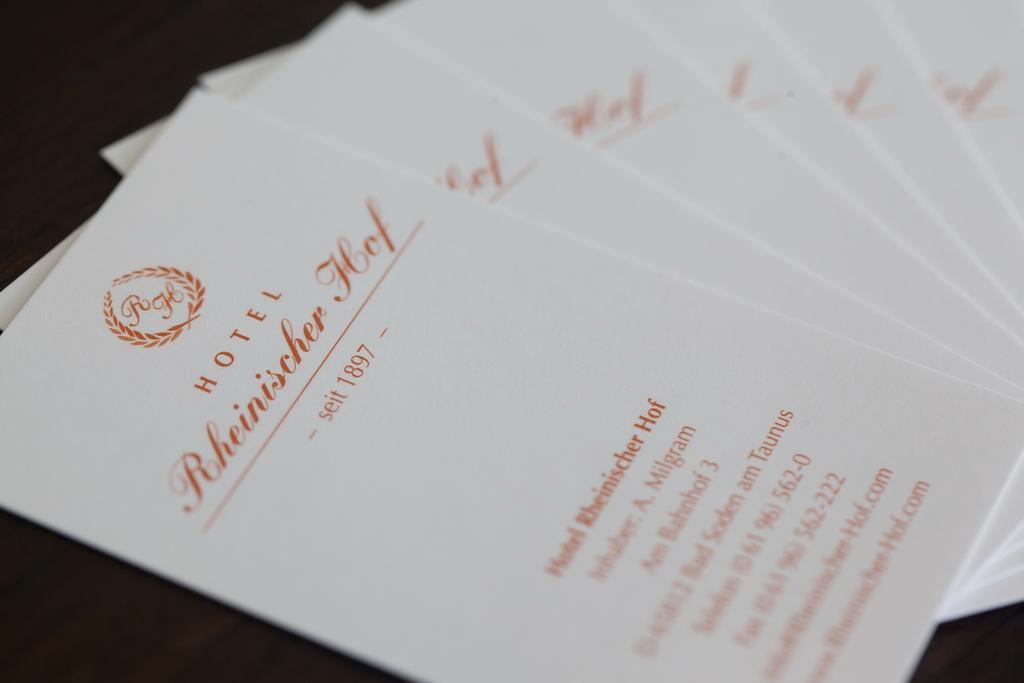 RH
HOTEL
Rheinischer Hof
– seit 1897 –
Hotel Rheinischer Hof
Inhaber: A. Milgram
Am Bahnhof 3
D-65812 Bad Soden am Taunus
Telefon (0 61 96) 562-0
Fax (0 61 96) 562-222
info@Rheinischer-Hof.com
www.Rheinischer-Hof.com
Hof
Hof